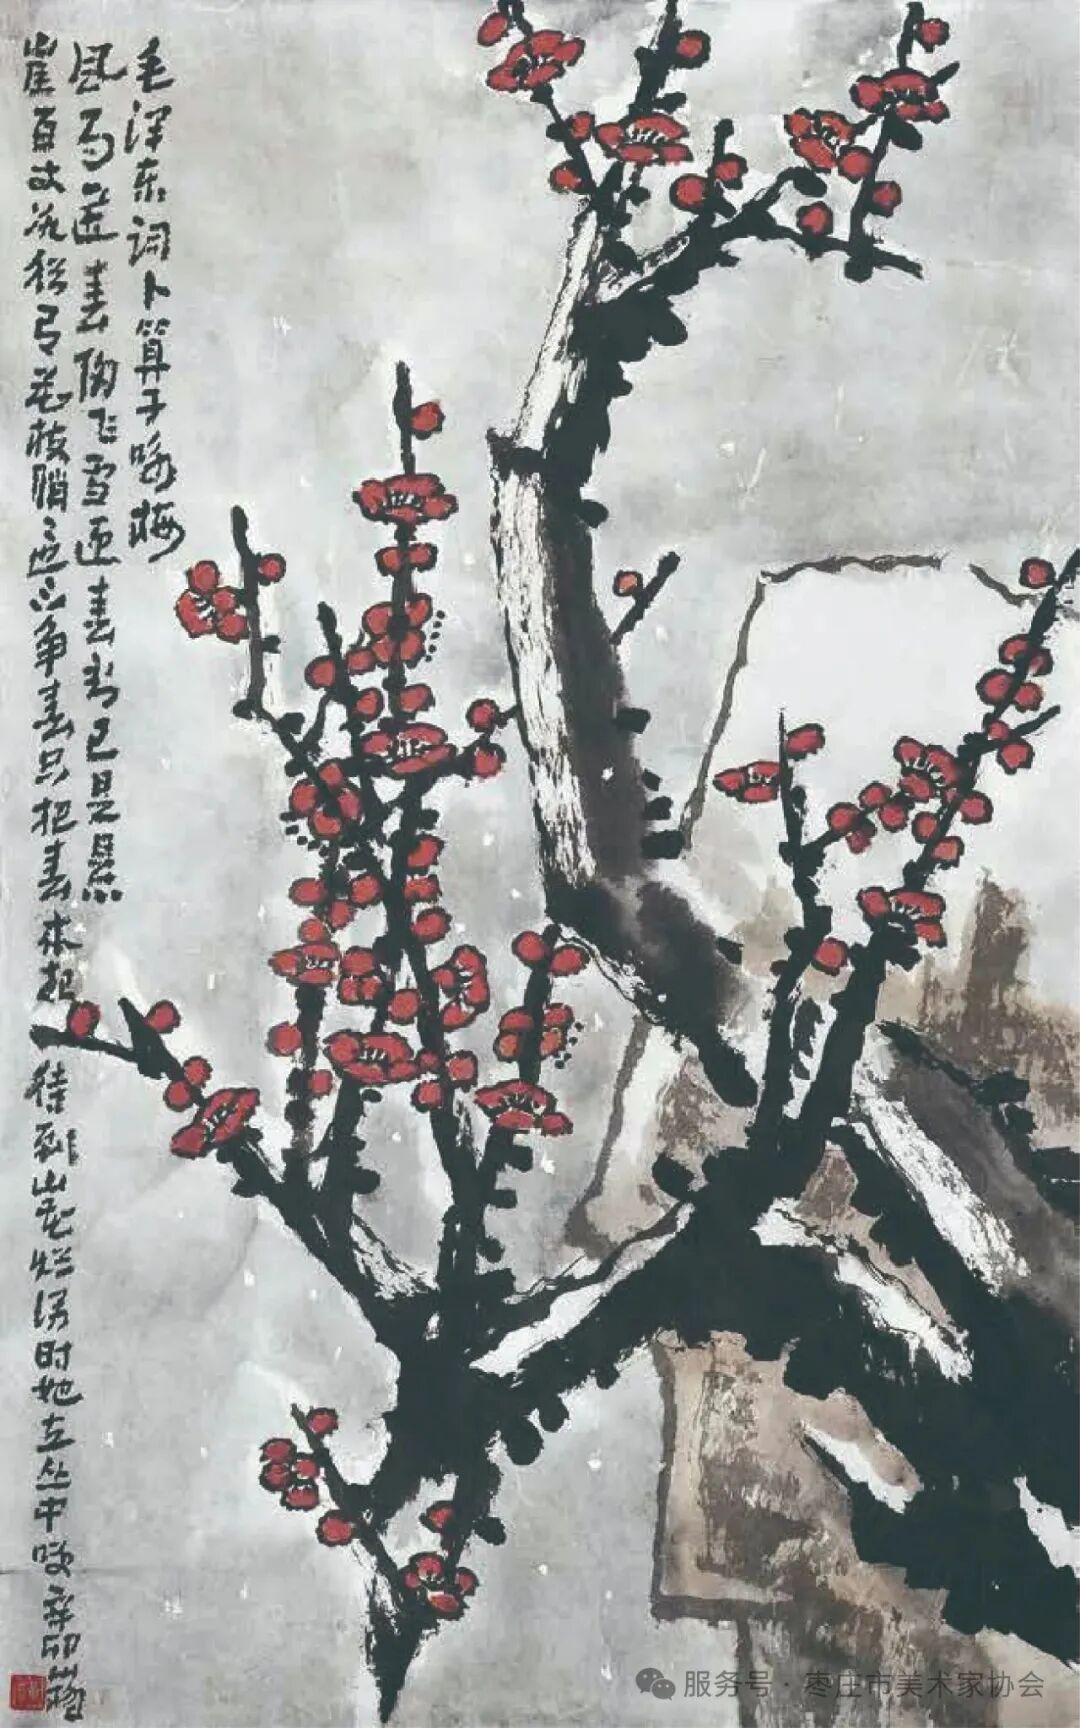 毛泽东词卜算子咏梅
风雨送春归飞雪迎春到已是悬
崖百丈冰犹有花枝俏〻也不争春只把春来报 待到山花烂漫时她在丛中笑辛卯
服务号 · 枣庄市美术家协会